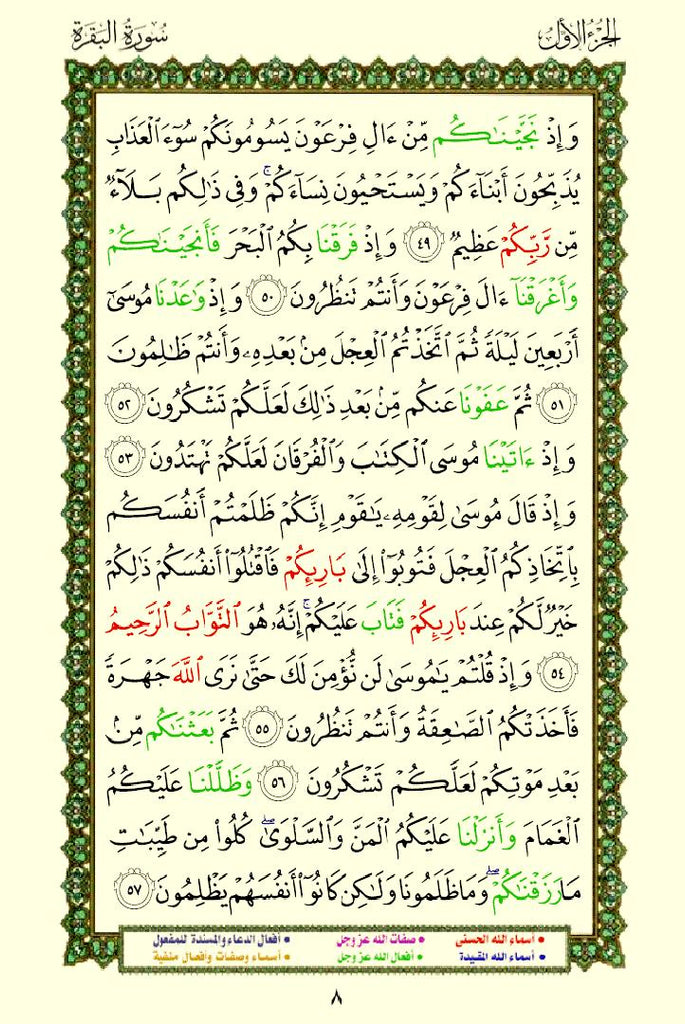 الجزء الأول
سورة البقرة
وَإِذْ نَجَّيْنَٰكُم مِّنْ ءَالِ فِرْعَوْنَ يَسُومُونَكُمْ سُوٓءَ ٱلْعَذَابِ
يُذَبِّحُونَ أَبْنَآءَكُمْ وَيَسْتَحْيُونَ نِسَآءَكُمْ ۚ وَفِى ذَٰلِكُم بَلَآءٌ
مِّن رَّبِّكُمْ عَظِيمٌ ٤٩ وَإِذْ فَرَقْنَا بِكُمُ ٱلْبَحْرَ فَأَنجَيْنَٰكُمْ
وَأَغْرَقْنَآ ءَالَ فِرْعَوْنَ وَأَنتُمْ تَنظُرُونَ ٥٠ وَإِذْ وَٰعَدْنَا مُوسَىٰٓ
أَرْبَعِينَ لَيْلَةً ثُمَّ ٱتَّخَذْتُمُ ٱلْعِجْلَ مِنۢ بَعْدِهِۦ وَأَنتُمْ ظَٰلِمُونَ
٥١ ثُمَّ عَفَوْنَا عَنكُم مِّنۢ بَعْدِ ذَٰلِكَ لَعَلَّكُمْ تَشْكُرُونَ ٥٢
وَإِذْ ءَاتَيْنَا مُوسَى ٱلْكِتَٰبَ وَٱلْفُرْقَانَ لَعَلَّكُمْ تَهْتَدُونَ ٥٣
وَإِذْ قَالَ مُوسَىٰ لِقَوْمِهِۦ يَٰقَوْمِ إِنَّكُمْ ظَلَمْتُمْ أَنفُسَكُم
بِٱتِّخَاذِكُمُ ٱلْعِجْلَ فَتُوبُوٓا۟ إِلَىٰ بَارِئِكُمْ فَٱقْتُلُوٓا۟ أَنفُسَكُمْ ذَٰلِكُمْ
خَيْرٌ لَّكُمْ عِندَ بَارِئِكُمْ فَتَابَ عَلَيْكُمْ ۚ إِنَّهُۥ هُوَ ٱلتَّوَّابُ ٱلرَّحِيمُ
٥٤ وَإِذْ قُلْتُمْ يَٰمُوسَىٰ لَن نُّؤْمِنَ لَكَ حَتَّىٰ نَرَى ٱللَّهَ جَهْرَةً
فَأَخَذَتْكُمُ ٱلصَّٰعِقَةُ وَأَنتُمْ تَنظُرُونَ ٥٥ ثُمَّ بَعَثْنَٰكُم مِّنۢ
بَعْدِ مَوْتِكُمْ لَعَلَّكُمْ تَشْكُرُونَ ٥٦ وَظَلَّلْنَا عَلَيْكُمُ
ٱلْغَمَامَ وَأَنزَلْنَا عَلَيْكُمُ ٱلْمَنَّ وَٱلسَّلْوَىٰ ۖ كُلُوا۟ مِن طَيِّبَٰتِ
مَا رَزَقْنَٰكُمْ ۖ وَمَا ظَلَمُونَا وَلَٰكِن كَانُوٓا۟ أَنفُسَهُمْ يَظْلِمُونَ ٥٧
• أسماء الله الحسنى • صفات الله عز وجل • أفعال الدعاء والمسندة للمفعول
• أسماء الله المقيدة • أفعال الله عز وجل • أسماء وصفات وأفعال منفية
٨